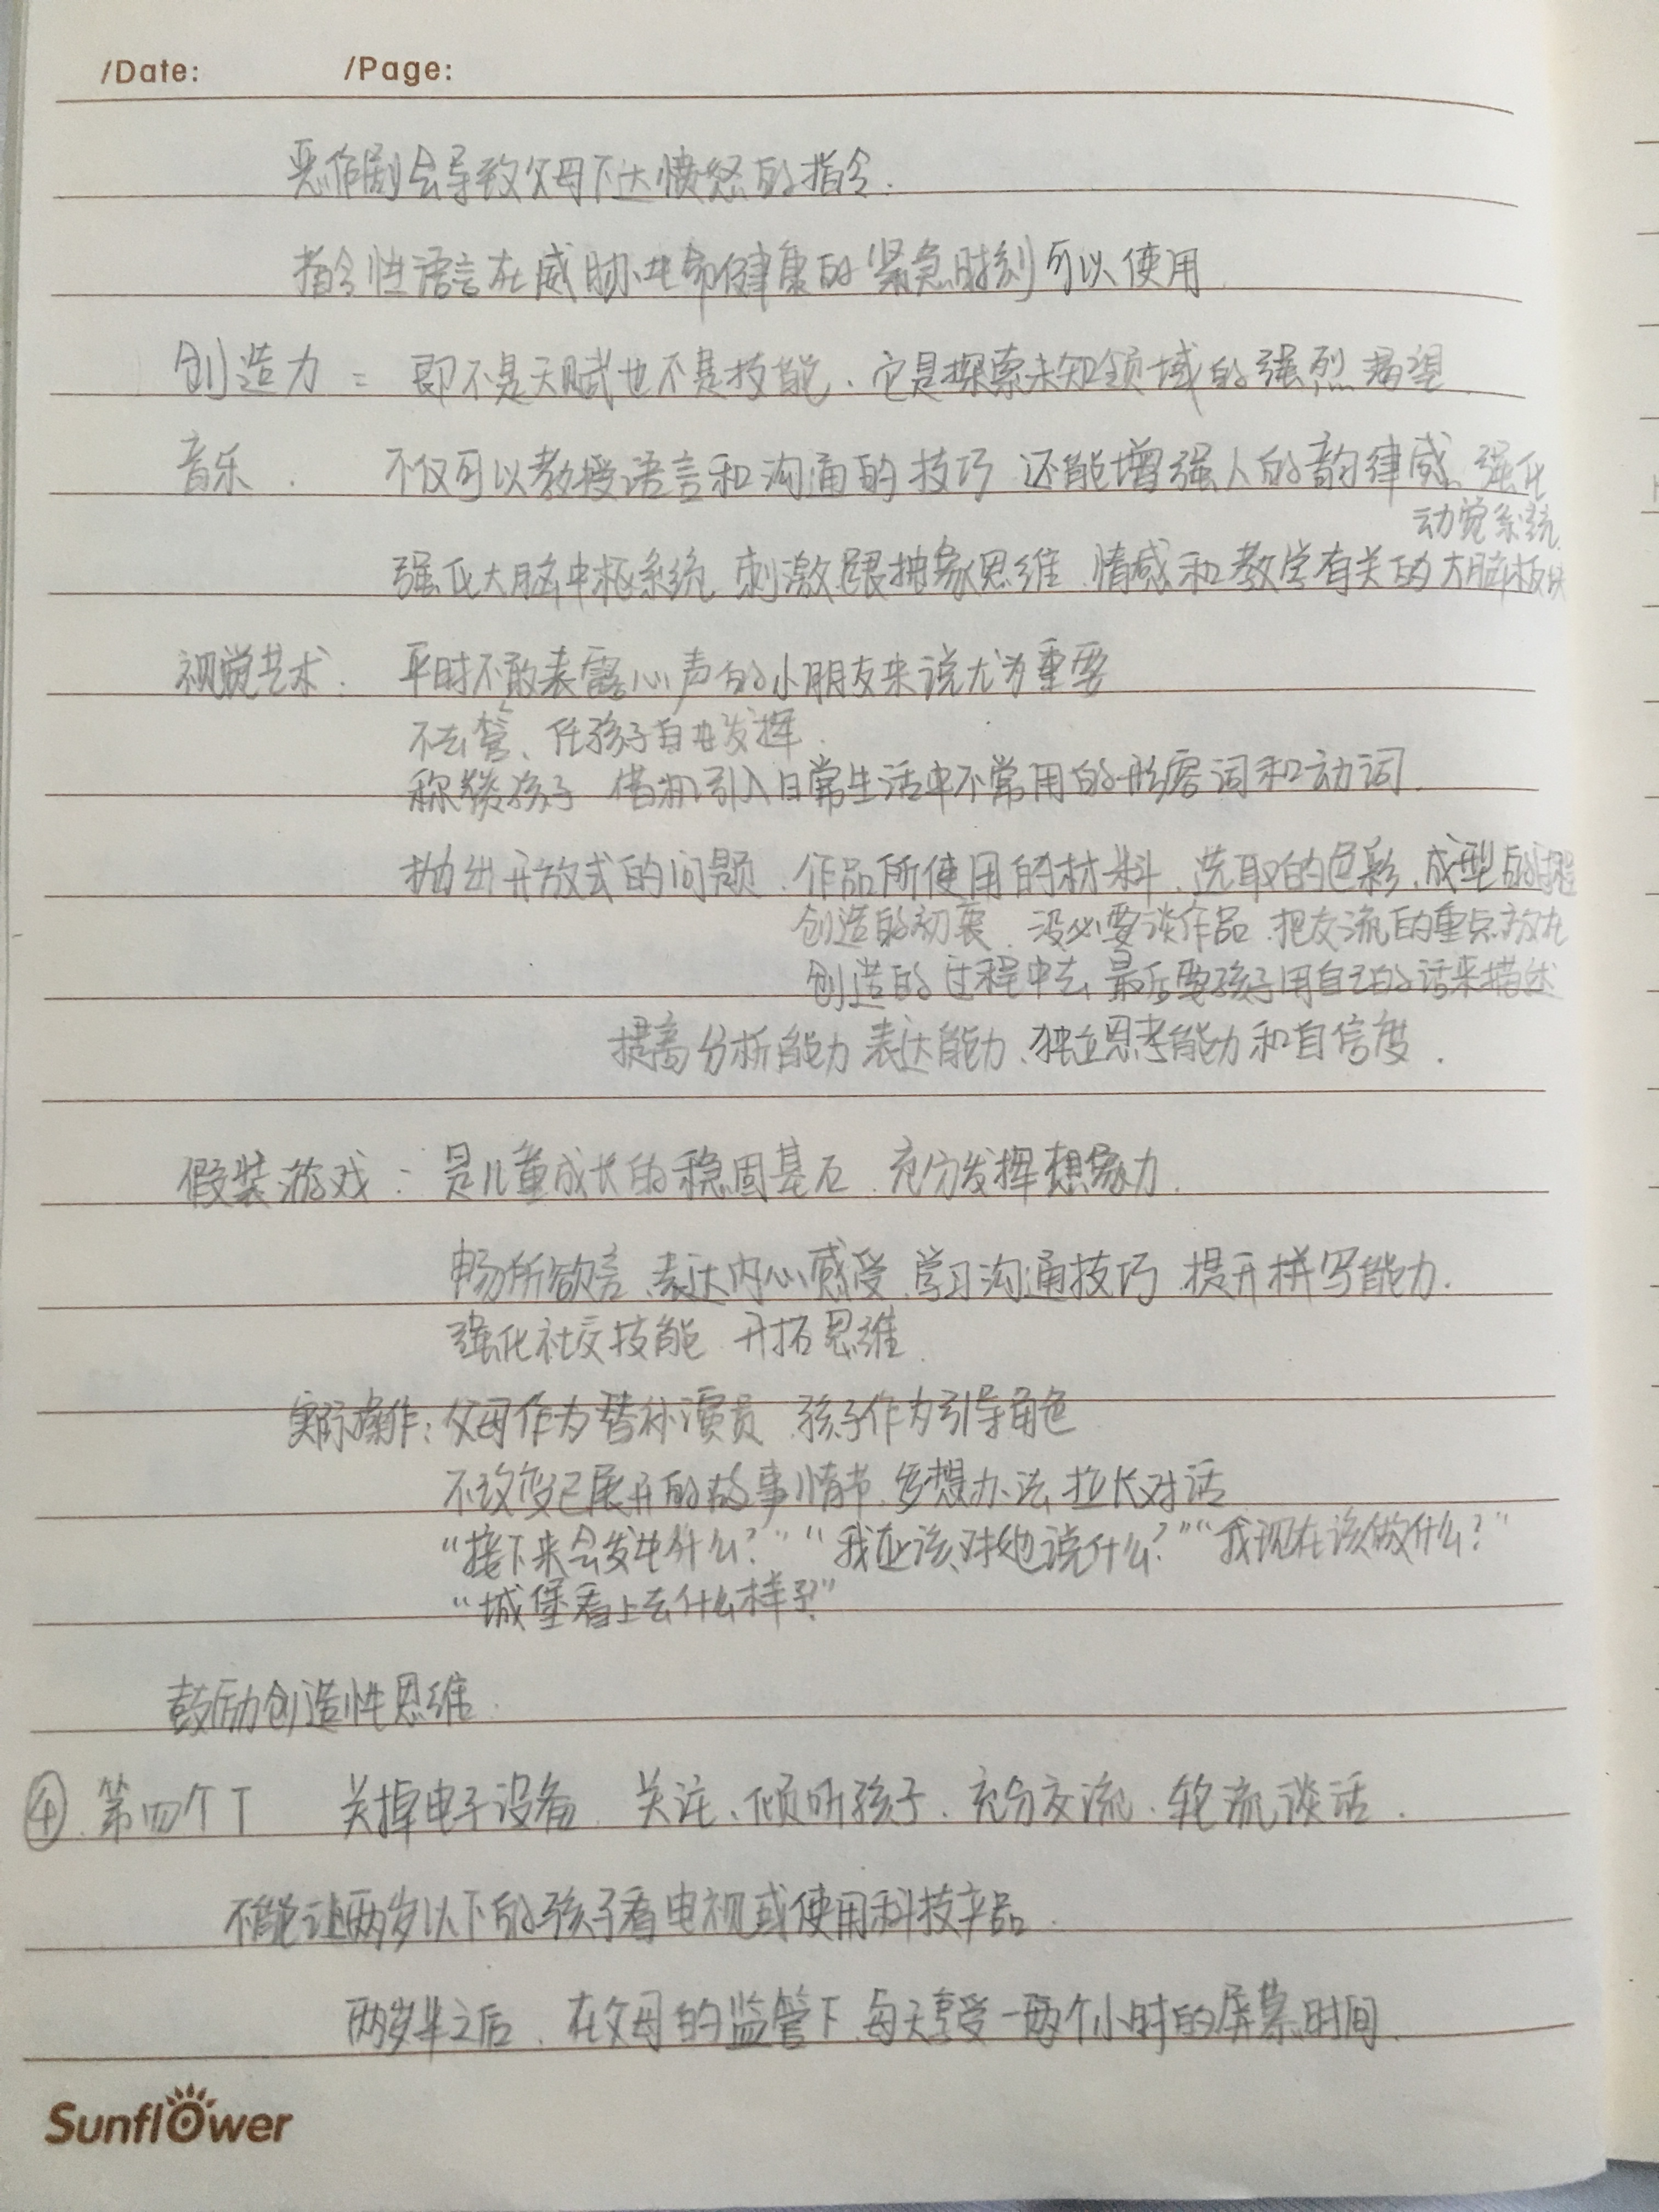 /Date: /Page:
恶作剧会导致父母下达愤怒的指令.
指令性语言在威胁生命健康的紧急时刻可以使用.
创造力 = 即不是天赋也不是技能、它是探索未知领域的强烈渴望.
音乐. 不仅可以教授语言和沟通的技巧 还能增强人的韵律感、强化
动觉系统.
强化大脑中枢系统、刺激跟抽象思维、情感和数学有关的大脑板块
视觉艺术. 平时不敢表露心声的小朋友来说尤为重要
不去管、任孩子自由发挥.
称赞孩子 借机引入日常生活中不常用的形容词和动词.
抛出开放式的问题、作品所使用的材料、选取的色彩、成型的过程
创造的初衷、没必要谈作品、把交流的重点放在
创造的过程中去、最后要孩子用自己的话来描述
提高分析能力 表达能力、独立思考能力和自信度.
假装游戏: 是儿童成长的稳固基石、充分发挥想象力.
畅所欲言、表达内心感受、学习沟通技巧 提升拼写能力.
强化社交技能 开拓思维.
实际操作: 父母作为替补演员、孩子作为引导角色
不改变已展开的故事情节、多想办法拉长对话
“接下来会发生什么?” “我应该对她说什么?” “我现在该做什么?”
“城堡看上去什么样子?”
鼓励创造性思维.
④. 第四个T 关掉电子设备、关注、倾听孩子、充分交流、轮流谈话.
不能让两岁以下的孩子看电视或使用科技产品.
两岁半之后、在父母的监管下、每天享受一两个小时的屏幕时间.
Sunflower